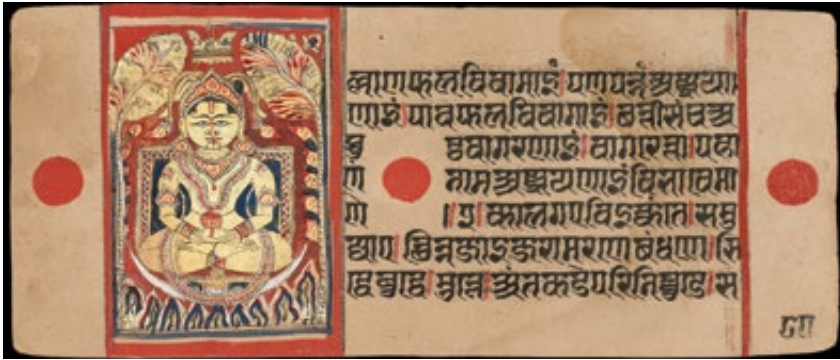 ल्लाणफलविवागाइं।पणपन्नंअज्झय
णाइं।पावफलविवागाइं।छत्तीसंचअ
पु ट्ठवागरणाइं।वागरित्ता।पहा
ण नामअज्झयणाइंविभावेमा
णे ।२।कालगएविइक्कंते।समु
ज्जाए।छिन्नजाइजरामरणबंधणे।सि
द्धेबुद्धे।मुत्ते।अंतकडेपरिनिव्वुडे।स